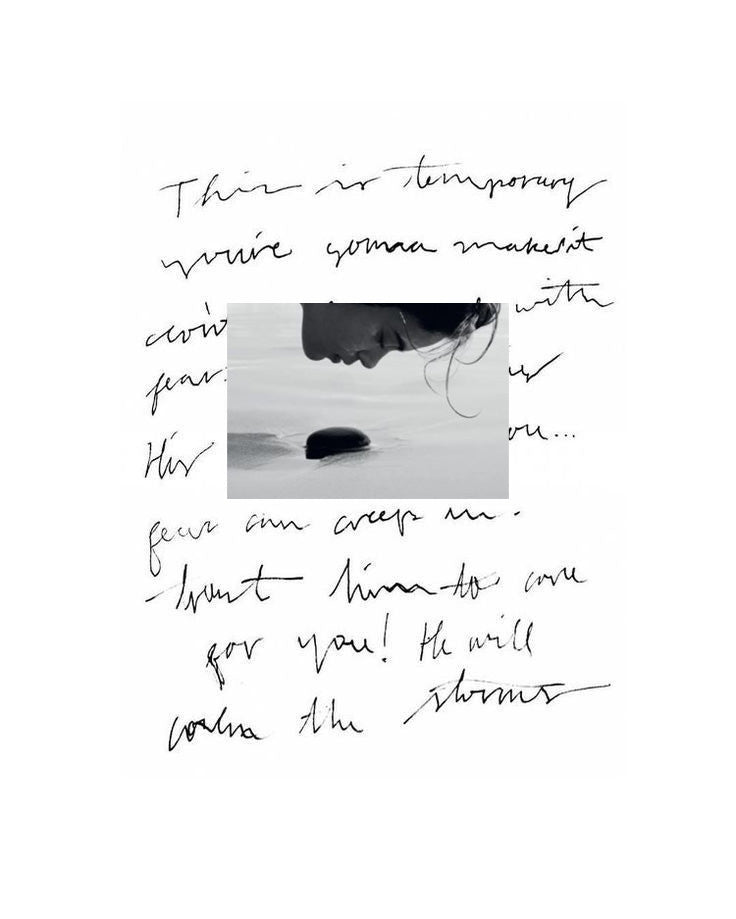 This is temporary
you're gonna make it
with
fear
His
fear can creep in.
trust him to care
for you! He will
calm the storms